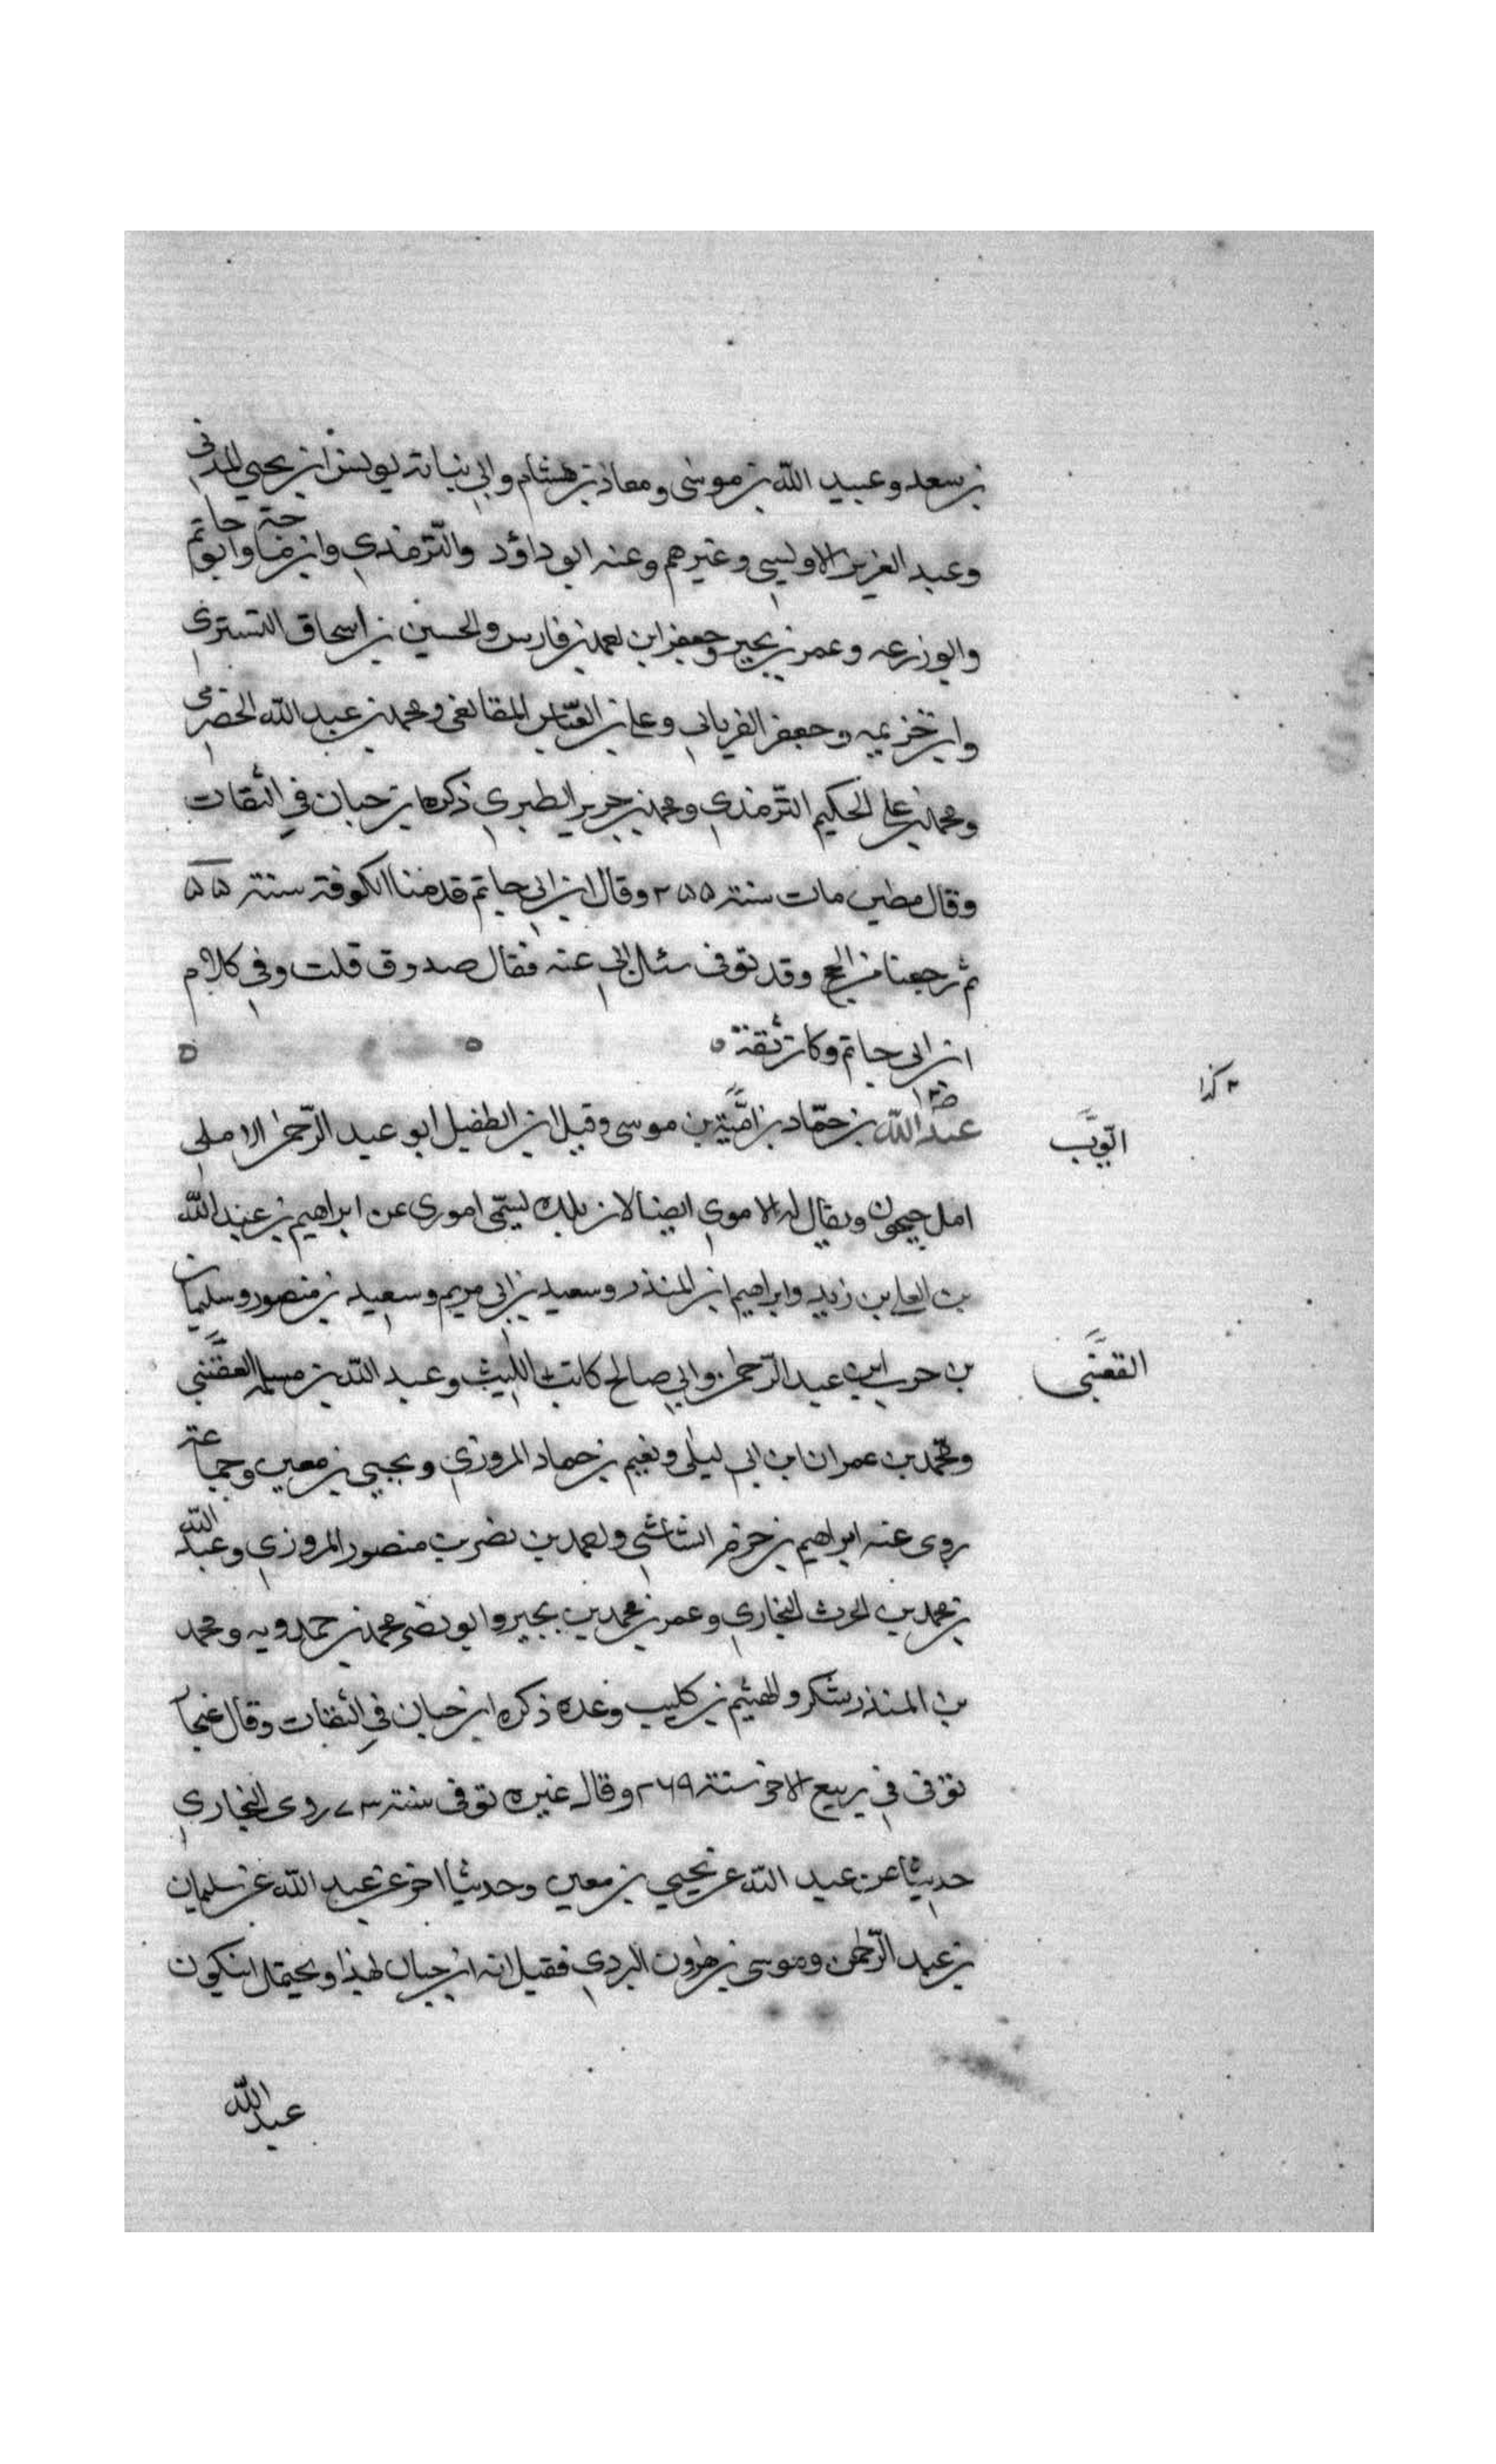 بن سعد وعبيد الله بن موسى ومعاذ بن هشام وابي نباتة يونس ابن يحيى المدني
وعبد العزيز الاويسي وغيرهم وعنه ابو داؤد والترمذي وابن ماجة وابو حاتم
وابو زرعه وعمر بن بجير وجعفر ابن احمد بن فارس والحسين بن اسحاق التستري
وابن خزيمه وجعفر الفريابي وعلي بن العباس المقانعي ومحمد بن عبد الله الحضرمي
ومحمد بن علي الحكيم الترمذي ومحمد بن جرير الطبري ذكره ابن حبان في الثقات
وقال مطين مات سنة ٢٥٥ وقال ابن ابي حاتم قدمنا الكوفة سنة ٥٥
ثم رجعنا من الحج وقد توفى سئل ابي عنه فقال صدوق قلت وفي كلام
ابن ابي حاتم وكان ثقة
عبد الله بن حماد بن امية بن موسى وقيل ابن الطفيل ابو عبد الرحمن الاملي
امل جيحون ويقال له الاموي ايضا لان بلده يسمى اموى عن ابراهيم بن عبد الله
بن العلا بن زيد وابراهيم ابن المنذر وسعيد بن ابي مريم وسعيد بن منصور وسليمان
بن حرب ابن عبد الرحمن وابي صالح كاتب الليث وعبد الله بن مسلمه العقنبي
القعنبى
ومحمد بن عمران ابن ابي ليلى ونعيم بن حماد المروزي ويحيى بن معين وجماعة
روى عنه ابراهيم بن خزم الشاشي واحمد بن نصر بن منصور المروزي وعبد الله
بن محمد بن الحرث البخاري وعمر بن محمد بن بجير وابو نصر محمد بن حمدويه ومحمد
بن المنذر شكر والهيثم بن كليب وعده ذكره ابن حبان في الثقات وقال غنجا
توفى في ربيع الاخر سنة ٢٦٩ وقال غيره توفى سنة ٧٣ روى البخاري
حديثا عن عبد الله عن يحيى بن معين وحديثا اخر عن عبد الله عن سليمان
بن عبد الرحمن وموسى بن هرون البردي فقيل انه ابن حبان لهذا ويحتمل ان يكون
عبد الله